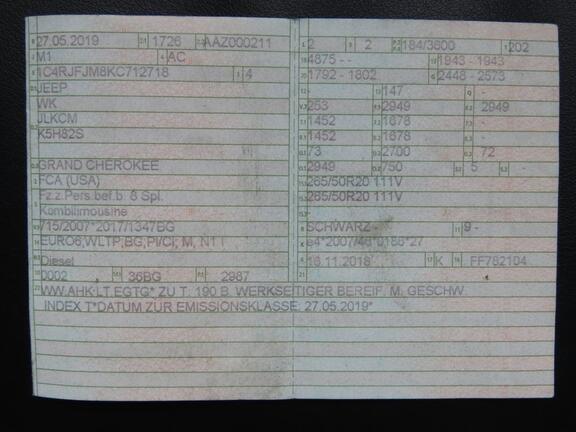 27.05.2019 1726 AAZ000211
M1 AC
1C4RJFJM8KC712718 4
JEEP
WK
JLKCM
K5H82S
GRAND CHEROKEE
FCA (USA)
Fz.z.Pers.bef.b. 8 Spl.
Kombilimousine
715/2007*2017/1347BG
EURO6;WLTP;BG;PI/CI; M, N1 I
Diesel
0002 36BG 2987
2 2 184/3600 202
4875 - - 1943 - 1943
1792 - 1802 2448 - 2573
- 147 -
253 2949 2949
1452 1678 -
1452 1678 -
73 2700 72
2949 750 5 -
265/50R20 111V
265/50R20 111V
-
SCHWARZ - 9 -
e4*2007/46*0186*27
16.11.2018 K FF782104
WW.AHK LT.EGTG* ZU T. 190 B. WERKSEITIGER BEREIF. M. GESCHW.
INDEX T*DATUM ZUR EMISSIONSKLASSE: 27.05.2019*